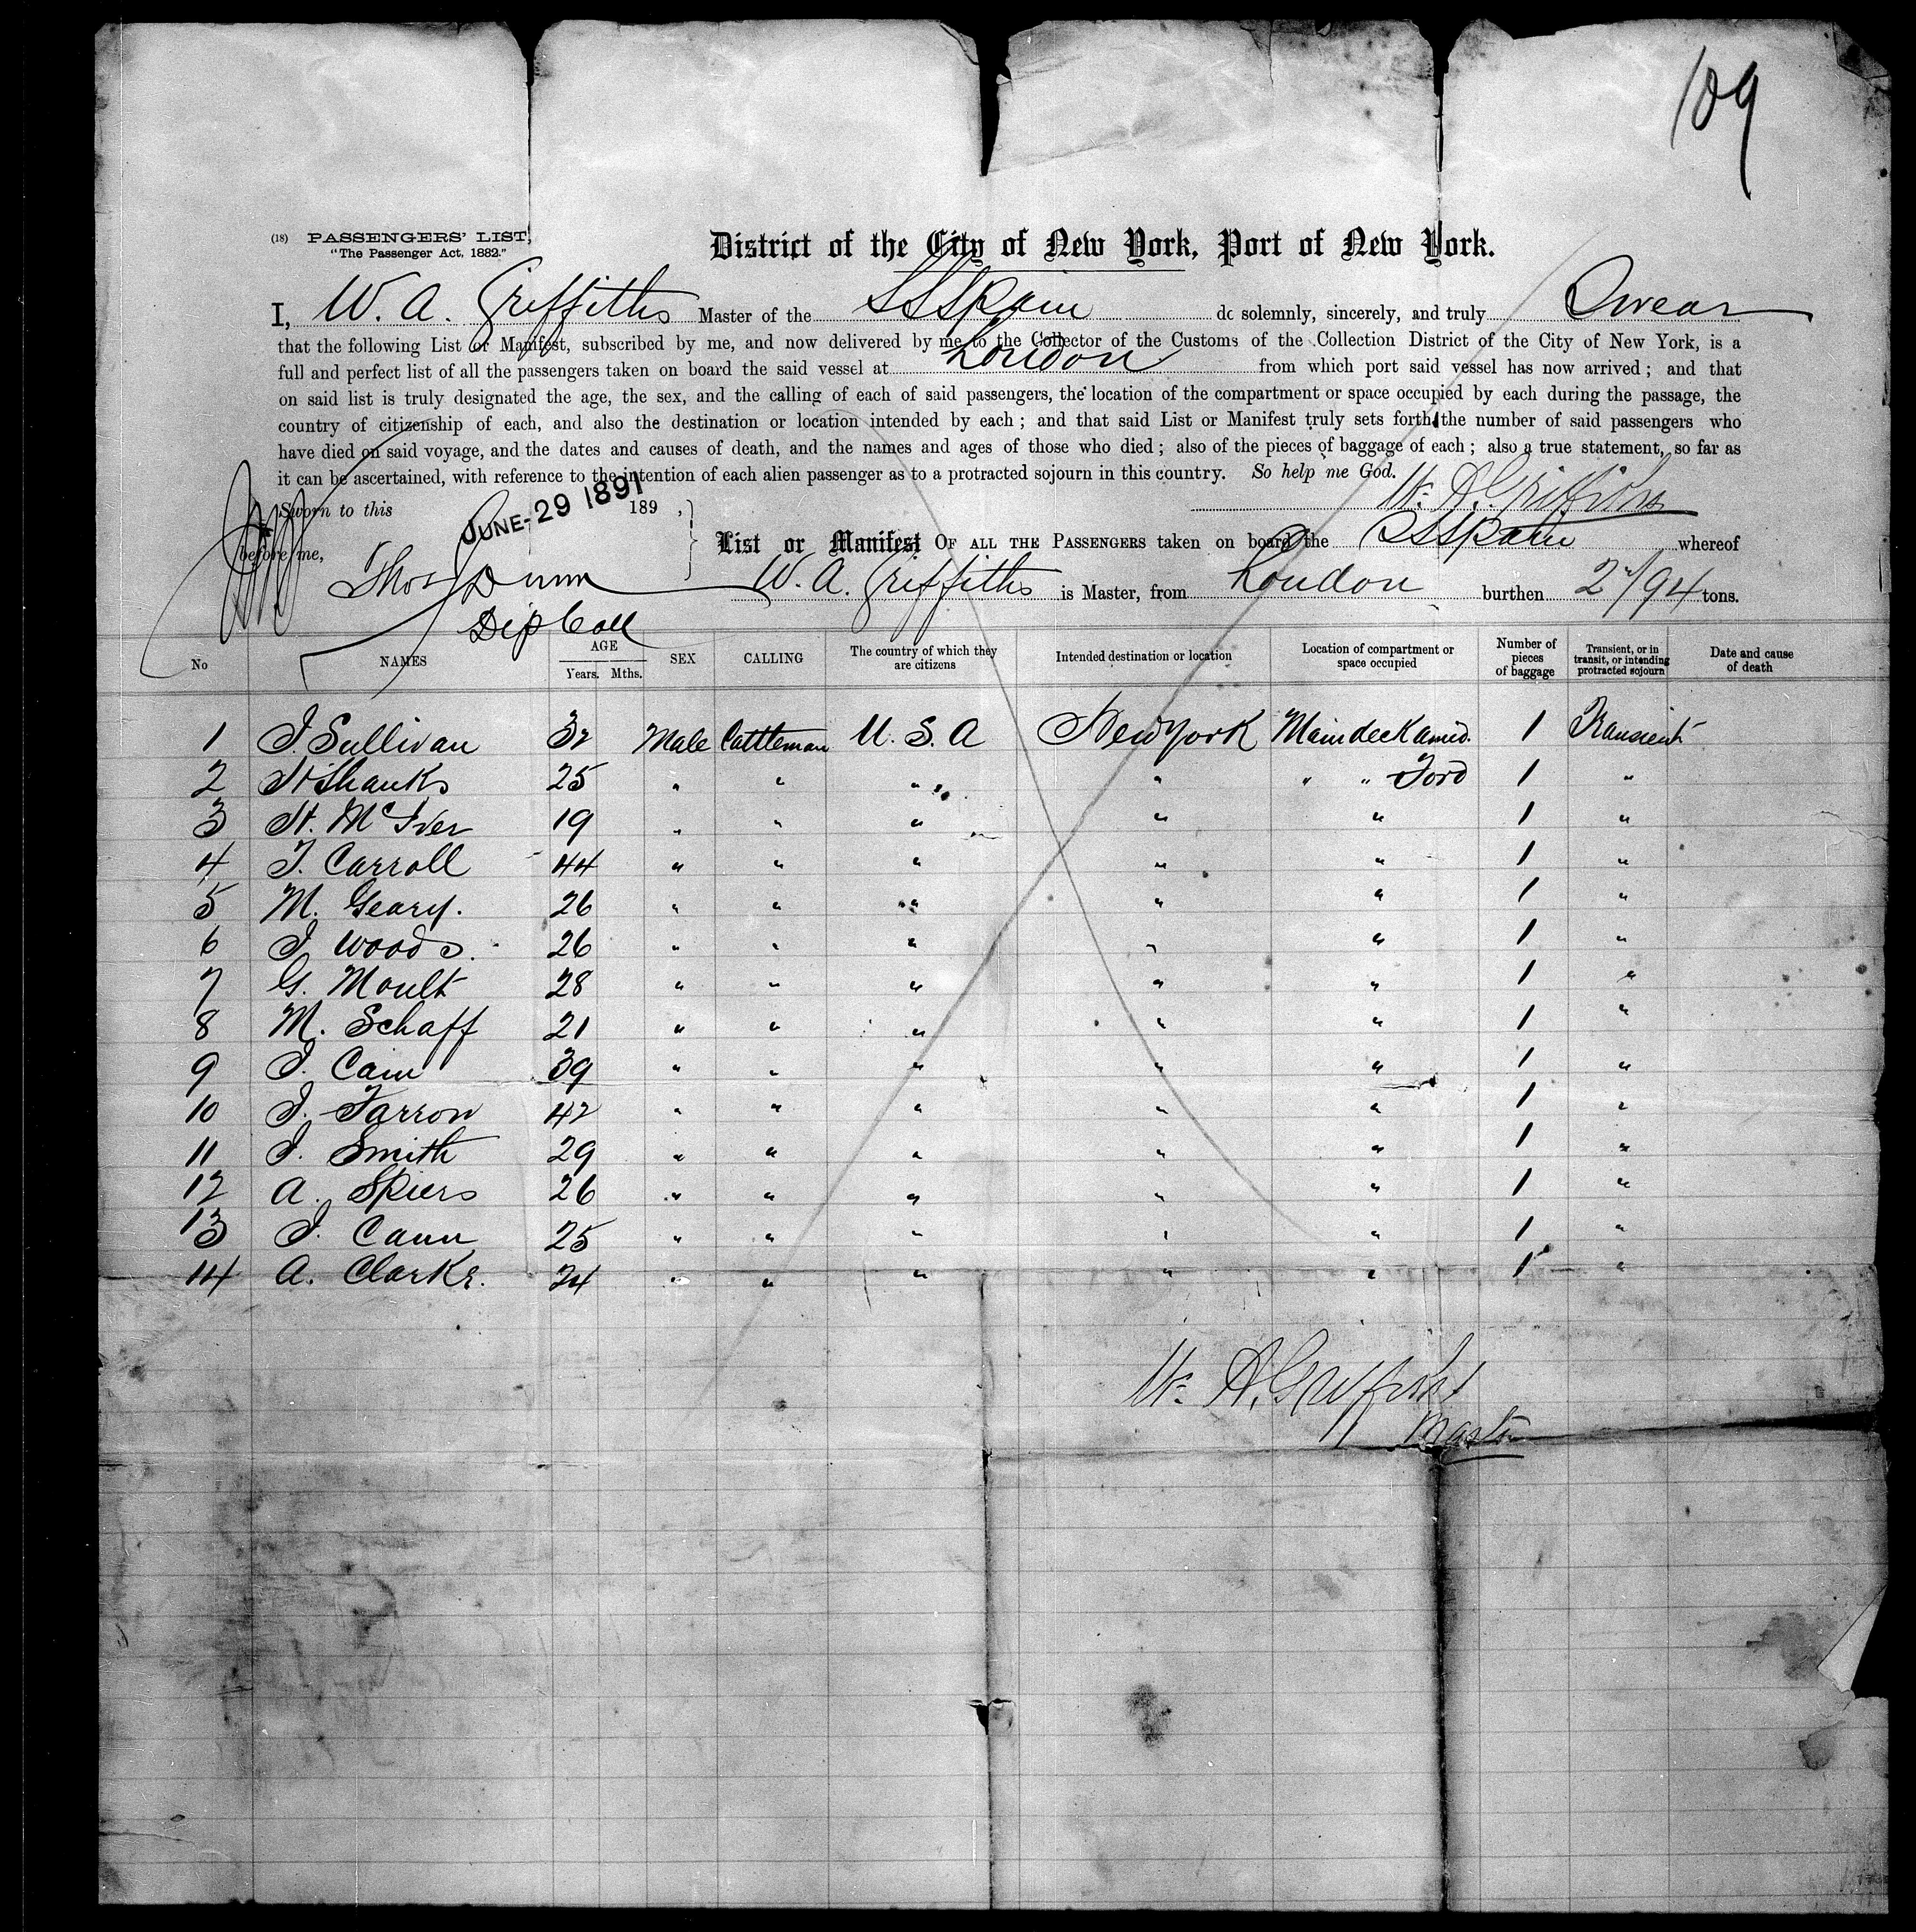 109
(18) PASSENGERS' LIST,
"The Passenger Act, 1882."
District of the City of New York, Port of New York.
I, W. A. Griffiths Master of the SS Spain do solemnly, sincerely, and truly Swear
that the following List or Manifest, subscribed by me, and now delivered by me to the Collector of the Customs of the Collection District of the City of New York, is a
full and perfect list of all the passengers taken on board the said vessel at London from which port said vessel has now arrived; and that
on said list is truly designated the age, the sex, and the calling of each of said passengers, the location of the compartment or space occupied by each during the passage, the
country of citizenship of each, and also the destination or location intended by each; and that said List or Manifest truly sets forth the number of said passengers who
have died on said voyage, and the dates and causes of death, and the names and ages of those who died; also of the pieces of baggage of each; also a true statement, so far as
it can be ascertained, with reference to the intention of each alien passenger as to a protracted sojourn in this country. So help me God.
W. A. Griffiths
Sworn to this JUNE-29 1891 189 ,
before me, Thos Dunn
Dep Coll
List or Manifest OF ALL THE PASSENGERS taken on board the SS Spain whereof
W. A. Griffiths is Master, from London burthen tons.
No NAMES AGE Years. Mths. SEX CALLING The country of which they are citizens Intended destination or location Location of compartment or space occupied Number of pieces of baggage Transient, or in transit, or intending protracted sojourn Date and cause of death
1 J. Sullivan 32 Male Cattleman U. S. A New York Main deck amid. 1 Transient
2 H Shanks 25 " " " " " " Ford 1 "
3 H. McIver 19 " " " " " 1 "
4 T. Carroll 44 " " " " " 1 "
5 M. Geary. 26 " " " " " 1 "
6 J. Woods. 26 " " " " " 1 "
7 G. Moult 28 " " " " " 1 "
8 M. Schaff 21 " " " " " 1 "
9 J. Cain 39 " " " " " 1 "
10 J. Farron 42 " " " " " 1 "
11 J. Smith 29 " " " " " 1 "
12 A. Spiers 26 " " " " " 1 "
13 J. Cann 25 " " " " " 1 "
14 A. Clarke. 24 " " " " " 1 "
W. A. Griffiths
Master